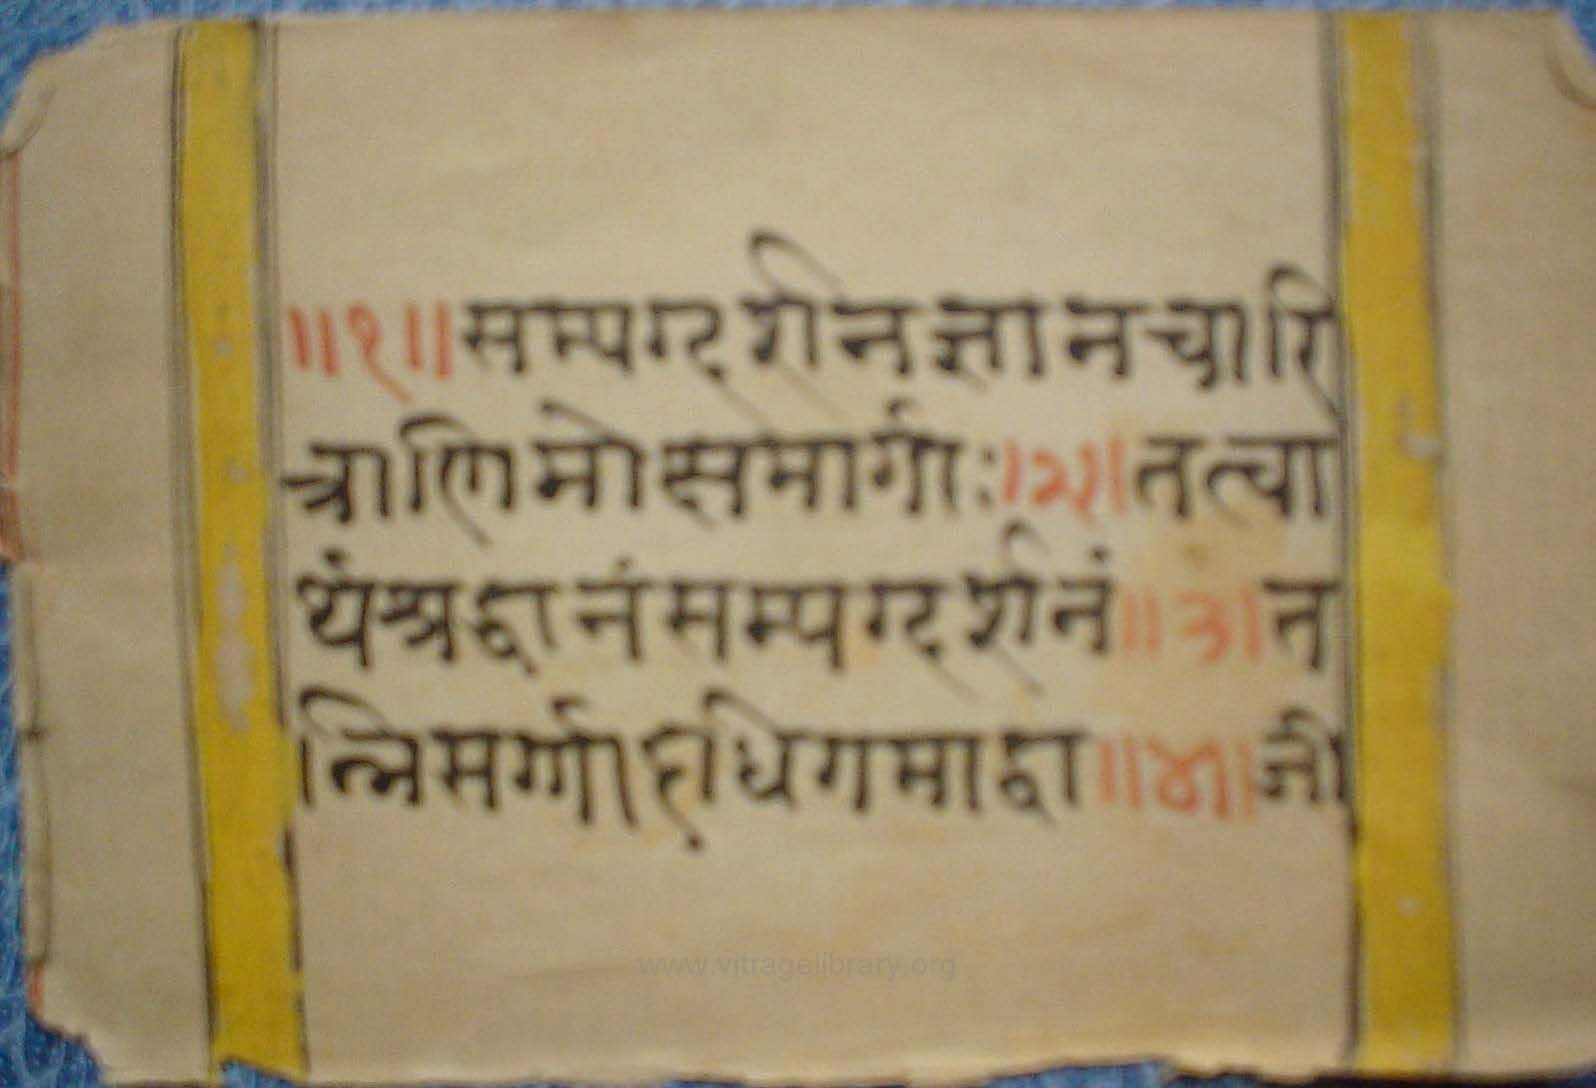 ॥१॥सम्यग्दर्शनज्ञानचारि
त्राणिमोक्षमार्गाः।२।तत्वा
र्थंश्रद्धानंसम्यग्दर्शनं॥३।त
न्निसर्ग्गादधिगमाद्वा॥४।जी
www.vitragelibrary.org